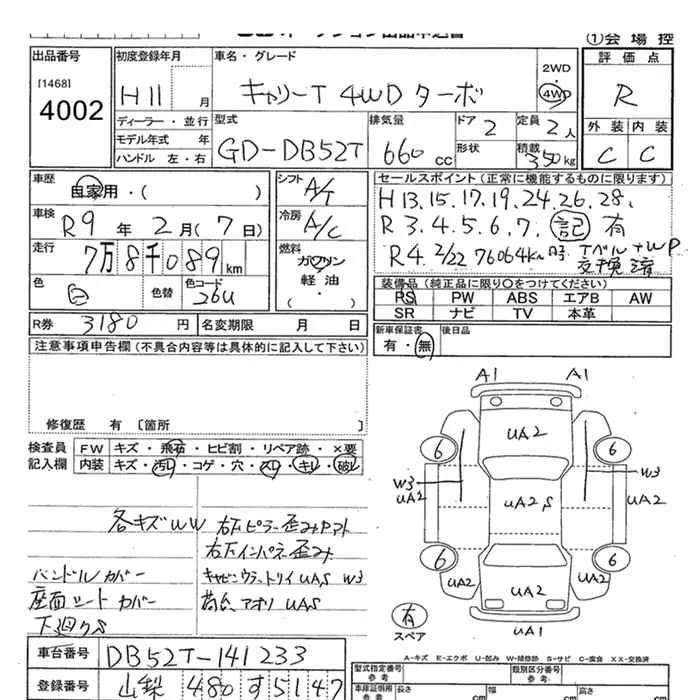 ①会場控
出品番号
[1468]
4002
初度登録年月
H11 月
ディーラー・並行
モデル年式 年
ハンドル 左・右
車名・グレード
キャリーT 4WD ターボ
2WD
4WD
型式
GD-DB52T
排気量
660 cc
ドア 2
形状
定員 2人
積載 350kg
評価点
R
外装 内装
C C
車歴
自家用・( )
車検
R9年2月(7日)
走行
7万8千089km
色
白
色替
色コード
26U
シフト
A/T
冷房
A/C
燃料
ガソリン
軽油
・( )
セールスポイント(正常に機能するものに限ります)
H13.15.17.19.24.26.28.
R3.4.5.6.7. 記 有
R4.2/22 76064km時 Tベル+WP
交換済
装備品(純正品に限り○をつけてください)
PS PW ABS エアB AW
SR ナビ TV 本革
新車保証書
有・無
後日品
R券 3180円
名変期限 月 日
注意事項申告欄(不具合内容等は具体的に記入して下さい)
修復歴 有 [箇所
検査員
記入欄
FW キズ・飛石・ヒビ割・リペア跡・×要
内装 キズ・汚レ・コゲ・穴・スレ・キレ・破レ
各キズWW
ハンドルカバー
座面シートカバー
下廻りS
右Fピラー歪み
右Fインパネ歪み
UAS W3
アオリ UAS
A1 A1
UA2
6 6
W3 W3
UA2 UA2S UA2
6 6
UA2 UA2 UA2
UA1
有
スペア
A-キズ E-エクボ U-凹み W-補修跡 S-サビ C-腐食 XX-交換済
車台番号
DB52T-141233
登録番号
山梨 480 す5147
型式指定番号
参考
類別区分番号
参考
車庫証明用
参考
長さ
cm
幅
cm
高さ
cm